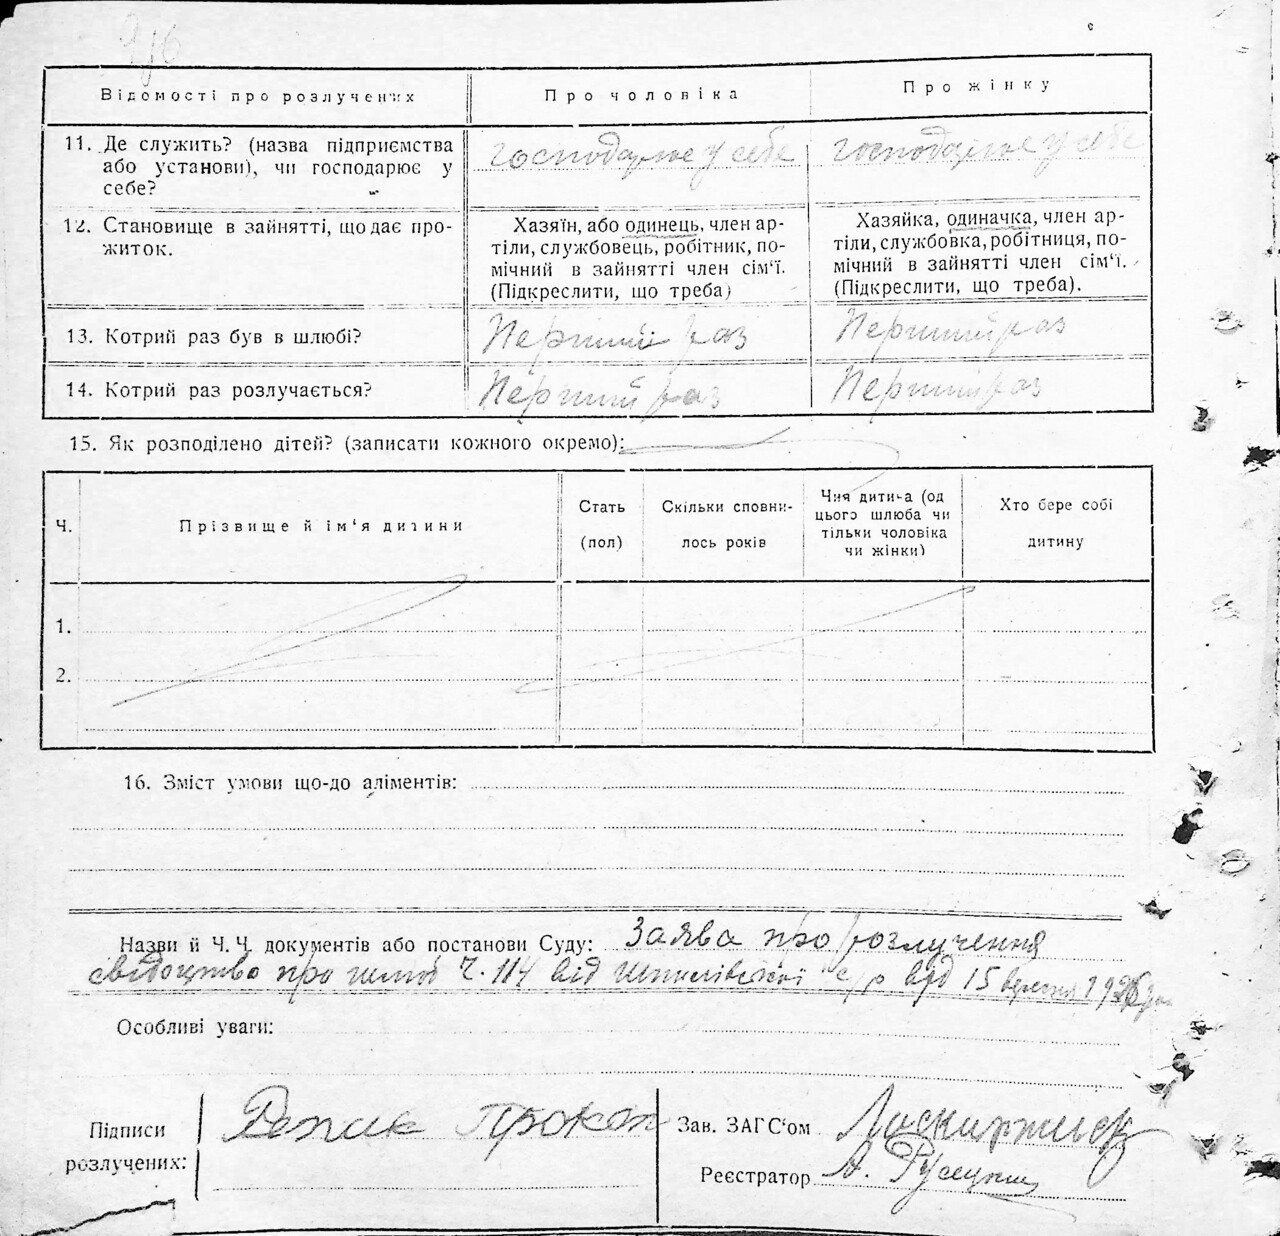 Відомості про розлучених
Про чоловіка
Про жінку
11. Де служить? (назва підприємства
або установи), чи господарює у
себе?
господарює у себе
господарює у себе
12. Становище в зайнятті, що дає про-
житок.
Хазяїн, або одинець, член ар-
тіли, службовець, робітник, по-
мічний в зайнятті член сім‘ї.
(Підкреслити, що треба)
Хазяйка, одиначка, член ар-
тіли, службовка, робітниця, по-
мічний в зайнятті член сім‘ї.
(Підкреслити, що треба).
13. Котрий раз був в шлюбі?
Перший раз
Перший раз
14. Котрий раз розлучається?
Перший раз
Перший раз
15. Як розподілено дітей? (записати кожного окремо):
Ч.
Прізвище й ім‘я дитини
Стать
(пол)
Скільки сповни-
лось років
Чия дитина (од
цього шлюба чи
тільки чоловіка
чи жінки)
Хто бере собі
дитину
1.
2.
16. Зміст умови що-до аліментів:
Назви й Ч. Ч. документів або постанови Суду: Заява про розлучення
свідоцтво про шлюб Ч. 114 від с/р від 15 вересня
Особливі уваги:
Підписи
розлучених:
Репик Прокоп
Зав. ЗАГС‘ом
Реєстратор А.